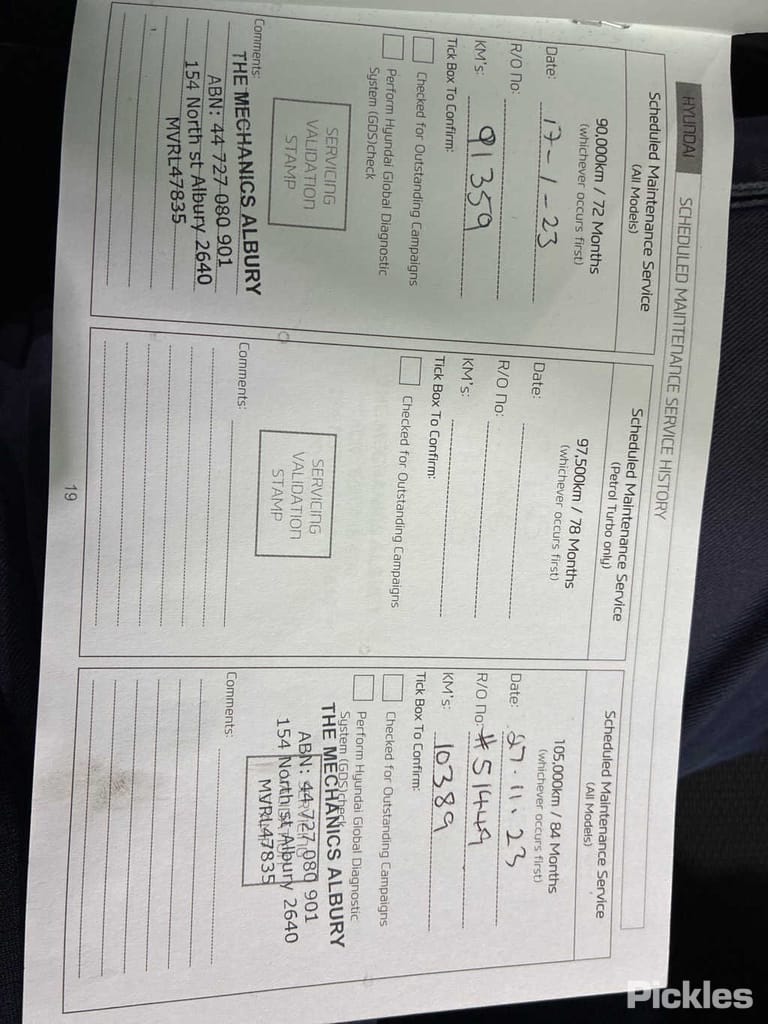 HYUNDAI SCHEDULED MAINTENANCE SERVICE HISTORY
Scheduled Maintenance Service
(All Models)
90,000km / 72 Months
(whichever occurs first)
Date: 17-1-23
R/O No:
KM's: 91359
Tick Box To Confirm:
Checked for Outstanding Campaigns
Perform Hyundai Global Diagnostic
System (GDS)check
SERVICING
VALIDATION
STAMP
Comments:
THE MECHANICS ALBURY
ABN: 44 727 080 901
154 North st Albury 2640
MVRL47835
Scheduled Maintenance Service
(Petrol Turbo only)
97,500km / 78 Months
(whichever occurs first)
Date:
R/O No:
KM's:
Tick Box To Confirm:
Checked for Outstanding Campaigns
SERVICING
VALIDATION
STAMP
Comments:
Scheduled Maintenance Service
(All Models)
105,000km / 84 Months
(whichever occurs first)
Date: 27.11.23
R/O No: #51449
KM's: 10389
Tick Box To Confirm:
Checked for Outstanding Campaigns
Perform Hyundai Global Diagnostic
System (GDS)check
THE MECHANICS ALBURY
ABN: 44 727 080 901
154 North st Albury 2640
MVRL47835
SERVICING
Comments:
19
Pickles